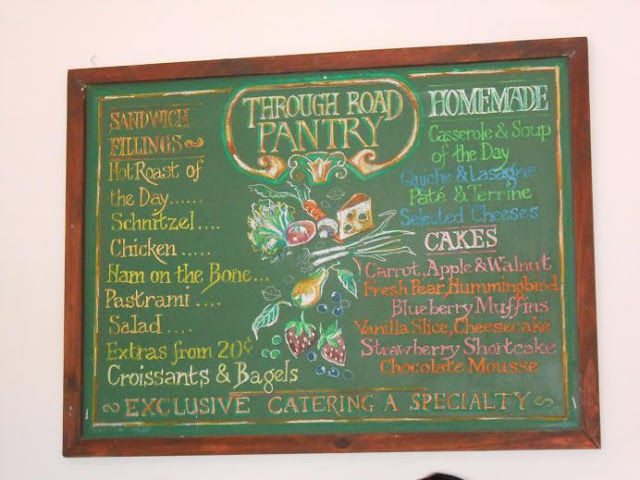 THROUGH ROAD
PANTRY
SANDWICH
FILLINGS
Hot Roast of
the Day......
Schnitzel....
Chicken......
Ham on the Bone...
Pastrami....
Salad....
Extras from 20¢
Croissants & Bagels
HOMEMADE
Casserole & Soup
of the Day
Quiche & Lasagne
Paté & Terrine
Selected Cheeses
CAKES
Carrot, Apple & Walnut
Fresh Pear, Hummingbird
Blueberry Muffins
Vanilla Slice, Cheesecake
Strawberry Shortcake
Chocolate Mousse
EXCLUSIVE CATERING A SPECIALTY